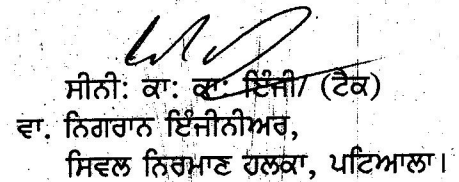 ਸੀਨੀ: ਕਾ: ਕਾ: ਇੰਜੀ/ (ਟੈਕ)
ਵਾ. ਨਿਗਰਾਨ ਇੰਜੀਨੀਅਰ,
ਸਿਵਲ ਨਿਰਮਾਣ ਹਲਕਾ, ਪਟਿਆਲਾ।